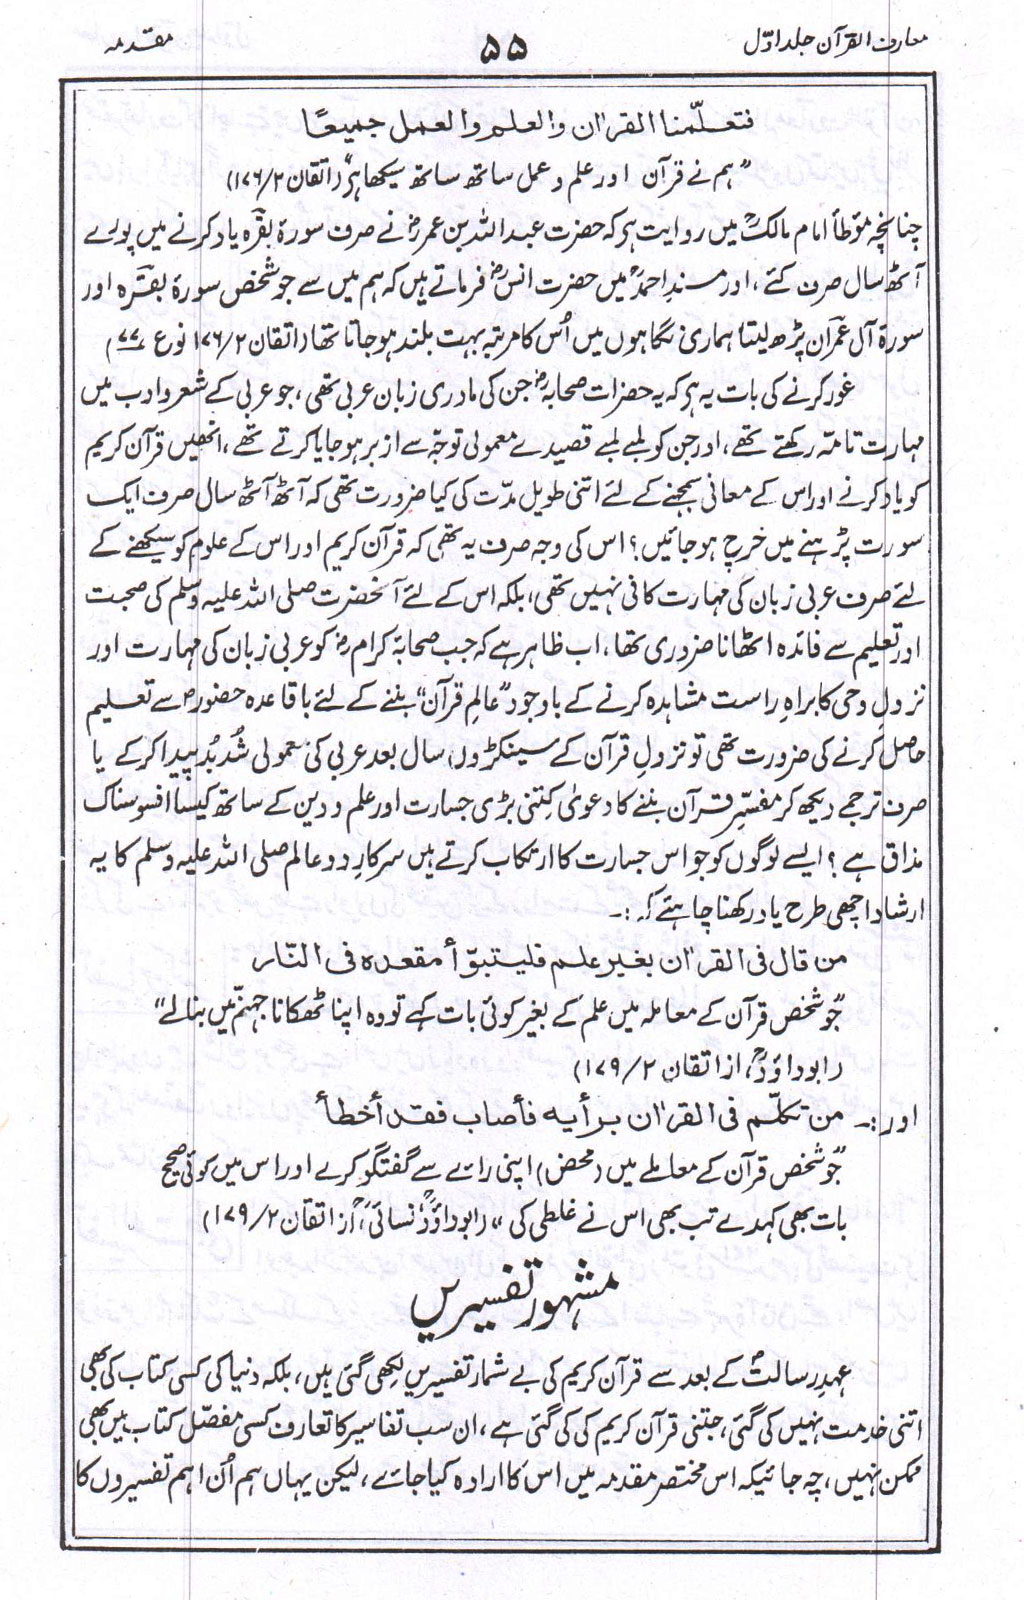 معارف القرآن جلد اوّل
۵۵
مقدمہ
فتعلّمنا القراٰن والعلم والعمل جمیعًا
”ہم نے قرآن اور علم و عمل ساتھ ساتھ سیکھا ہر“ (اتقان ۲/۱۷۶)
چنانچہ مؤطأ امام مالکؒ میں روایت ہر کہ حضرت عبد اللہ بن عمرؓ نے صرف سورۂ بقرہ یاد کرنے میں پورے
آٹھ سال صرف کئے، اور مسندِ احمدؒ میں حضرت انسؓ فرماتے ہیں کہ ہم میں سے جو شخص سورۂ بقرہ اور
سورۃ آل عمران پڑھ لیتا ہماری نگاہوں میں اُس کا مرتبہ بہت بلند ہو جاتا تھا (اتقان ۲/۱۷۶ نوع ۷۷)
غور کرنے کی بات یہ ہر کہ یہ حضرات صحابہؓ جن کی مادری زبان عربی تھی، جو عربی کے شعر و ادب میں
مہارت تامّہ رکھتے تھے، اور جن کو لمبے لمبے قصیدے معمولی توجّہ سے ازبر ہو جایا کرتے تھے، انھیں قرآن کریم
کو یاد کرنے اور اس کے معانی سمجھنے کے لئے اتنی طویل مدّت کی کیا ضرورت تھی کہ آٹھ آٹھ سال صرف ایک
سورت پڑھنے میں خرچ ہو جائیں؟ اس کی وجہ صرف یہ تھی کہ قرآن کریم اور اس کے علوم کو سیکھنے کے
لئے صرف عربی زبان کی مہارت کافی نہیں تھی، بلکہ اس کے لئے آنحضرت صلی اللہ علیہ وسلم کی صحبت
اور تعلیم سے فائدہ اٹھانا ضروری تھا، اب ظاہر ہے کہ جب صحابۂ کرامؓ کو عربی زبان کی مہارت اور
نزولِ وحی کا براہِ راست مشاہدہ کرنے کے باوجود ”عالمِ قرآن“ بننے کے لئے باقاعدہ حضورؐ سے تعلیم
حاصل کرنے کی ضرورت تھی تو نزولِ قرآن کے سینکڑوں سال بعد عربی کی معمولی شُد بُد پیدا کرکے یا
صرف ترجمے دیکھ کر مفسّرِ قرآن بننے کا دعویٰ کتنی بڑی جسارت اور علم و دین کے ساتھ کیسا افسوسناک
مذاق ہے؟ ایسے لوگوں کو جو اس جسارت کا ارتکاب کرتے ہیں سرکارِ دو عالم صلی اللہ علیہ وسلم کا یہ
ارشاد اچھی طرح یاد رکھنا چاہئے کہ :۔
من قال فی القراٰن بغیر علم فلیتبوّأ مقعدہ فی النّار
”جو شخص قرآن کے معاملہ میں علم کے بغیر کوئی بات کہے تو وہ اپنا ٹھکانا جہنّم میں بنالے“
(ابو داؤدؒ، از اتقان ۲/۱۷۹)
اور :۔ من تکلّم فی القراٰن برأیہ فأصاب فقد أخطأ
”جو شخص قرآن کے معاملے میں (محض) اپنی رائے سے گفتگو کرے اور اس میں کوئی صحیح
بات بھی کہدے تب بھی اس نے غلطی کی“ (ابو داؤدؒ، نسائیؒ، از اتقان ۲/۱۷۹)
مشہور تفسیریں
عہدِ رسالتؐ کے بعد سے قرآن کریم کی بے شمار تفسیریں لکھی گئی ہیں، بلکہ دنیا کی کسی کتاب کی بھی
اتنی خدمت نہیں کی گئی، جتنی قرآن کریم کی کی گئی ہے، ان سب تفاسیر کا تعارف کسی مفصّل کتاب میں بھی
ممکن نہیں، چہ جائیکہ اس مختصر مقدمہ میں اس کا ارادہ کیا جائے، لیکن یہاں ہم اُن اہم تفسیروں کا